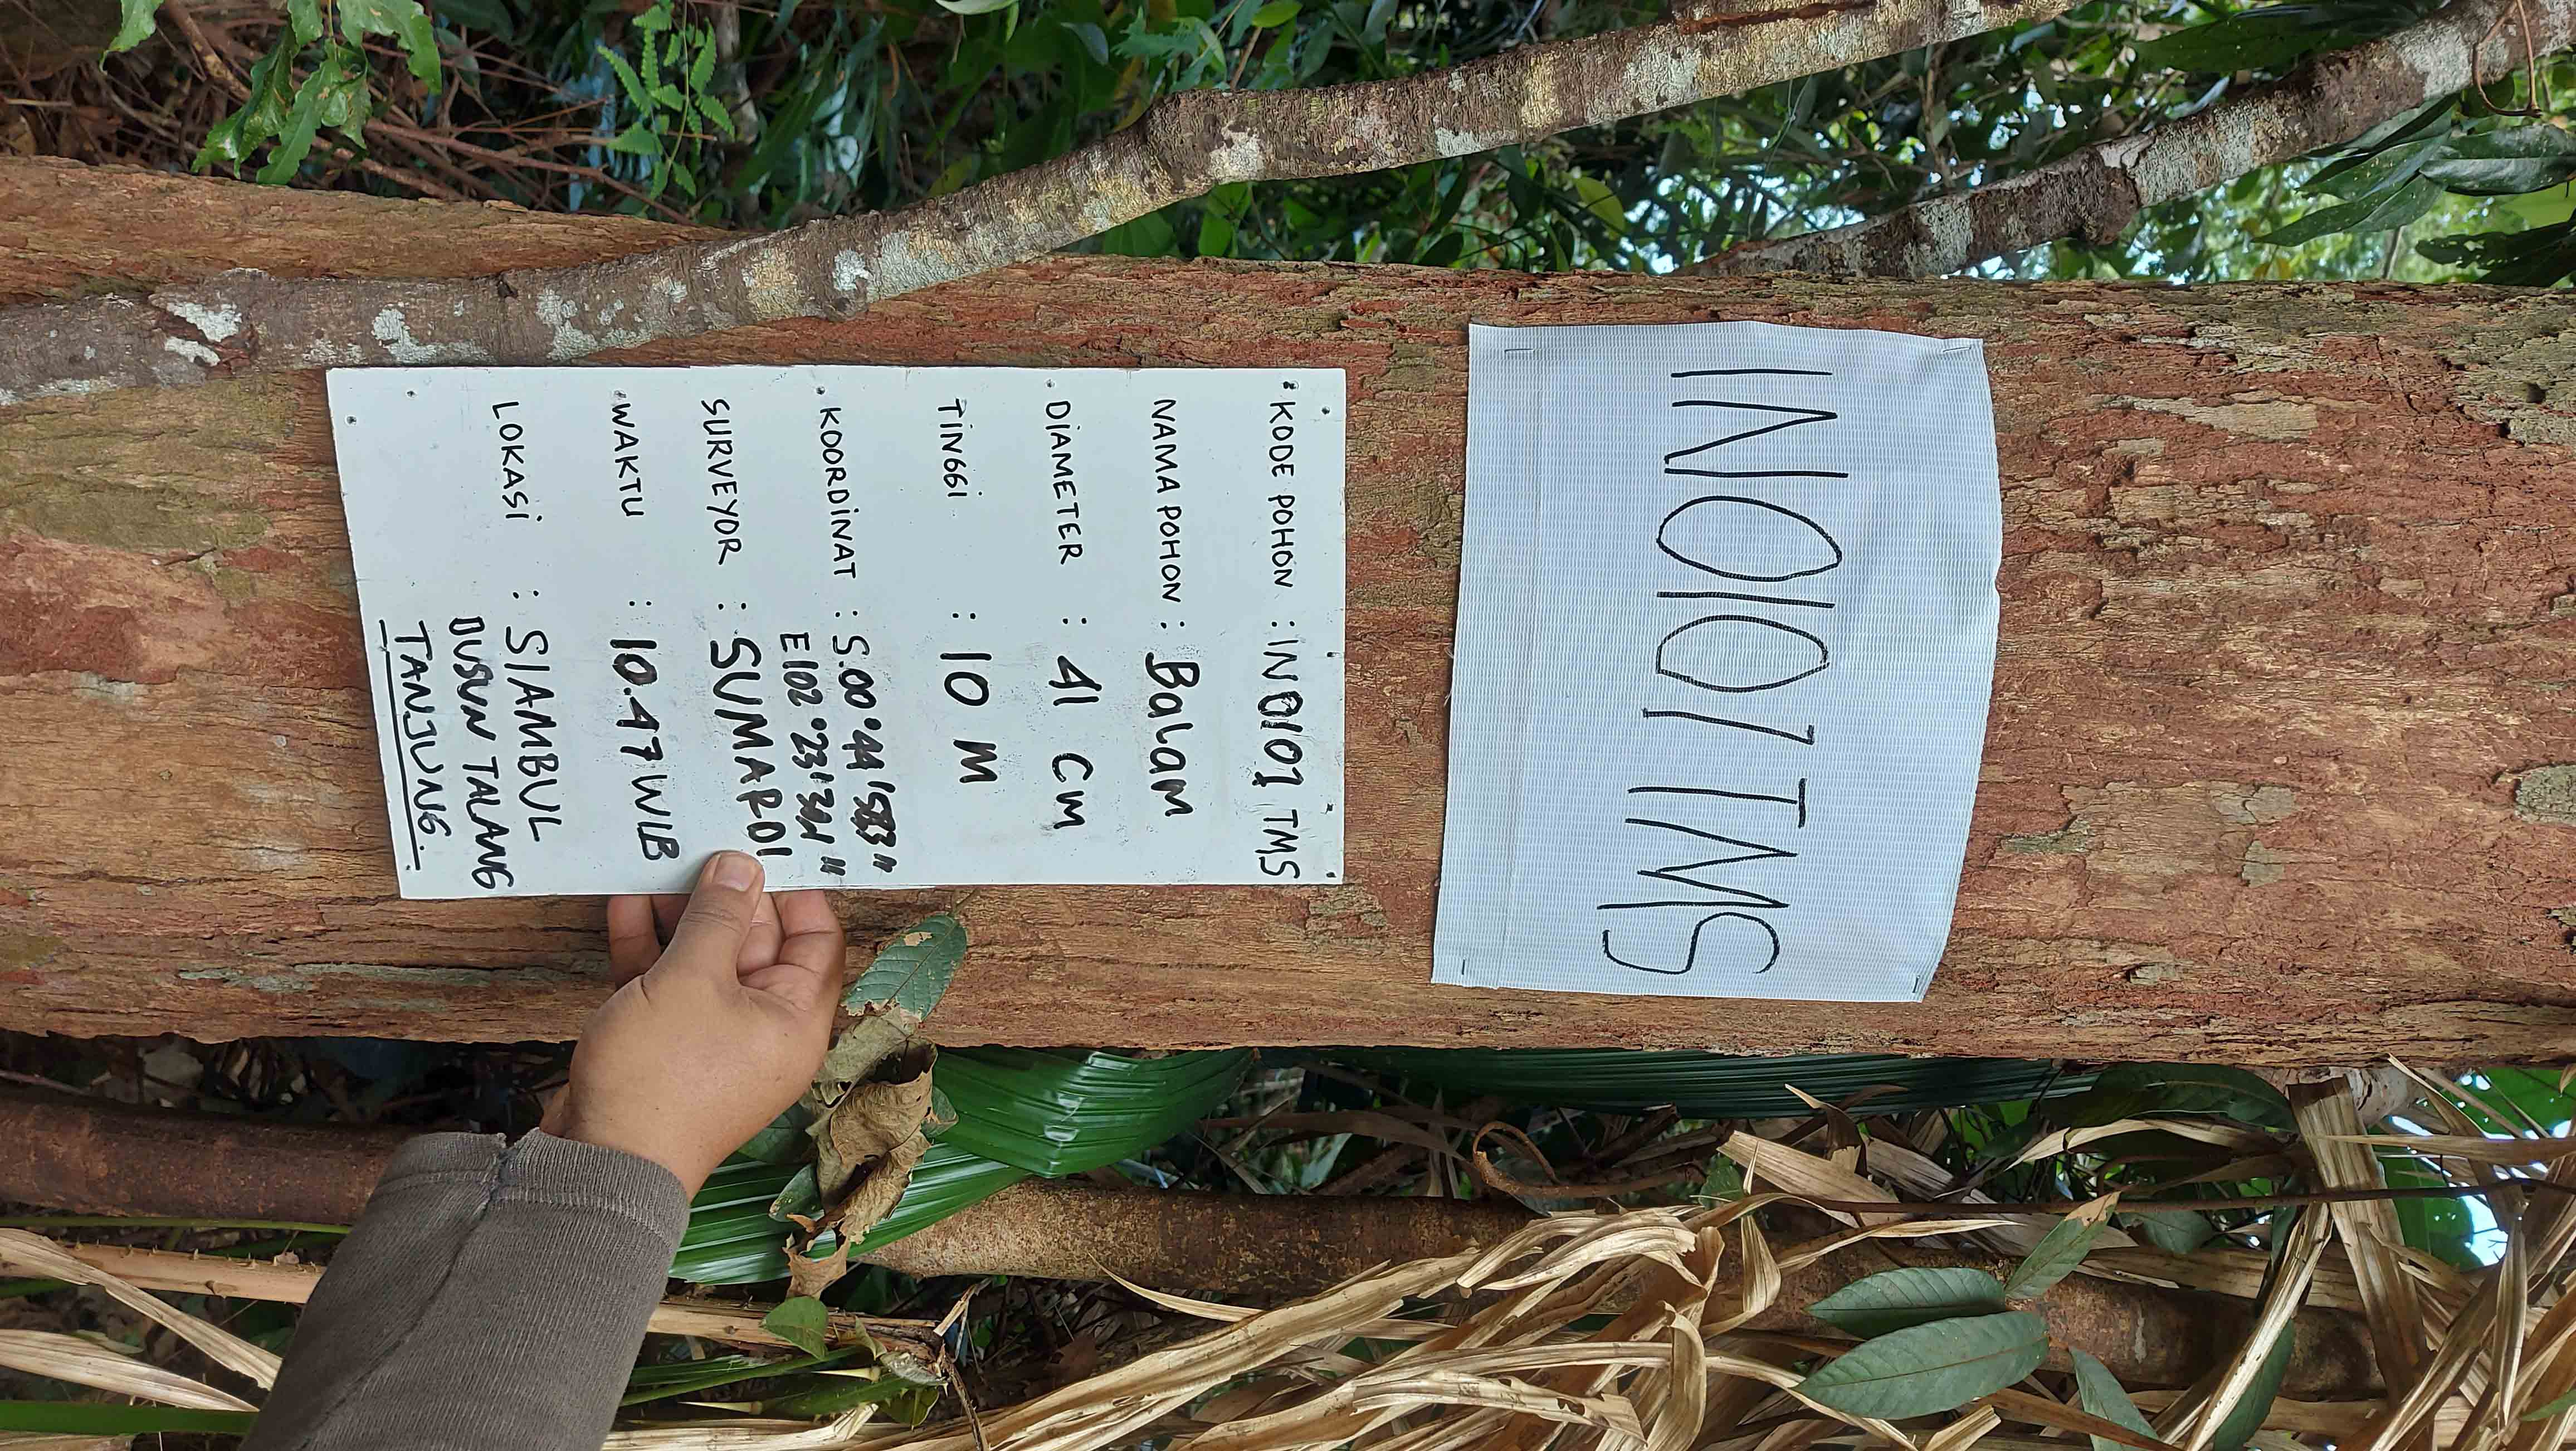 IN0101 TMS
KODE POHON : IN0101 TMS
NAMA POHON : Balam
DIAMETER : 41 CM
TINGGI : 10 M
KOORDINAT : S.00°44'
E 102°23'
SURVEYOR : SUMARDI
WAKTU : 10.47 WIB
LOKASI : SIAMBUL
DUSUN TALANG
TANJUNG.